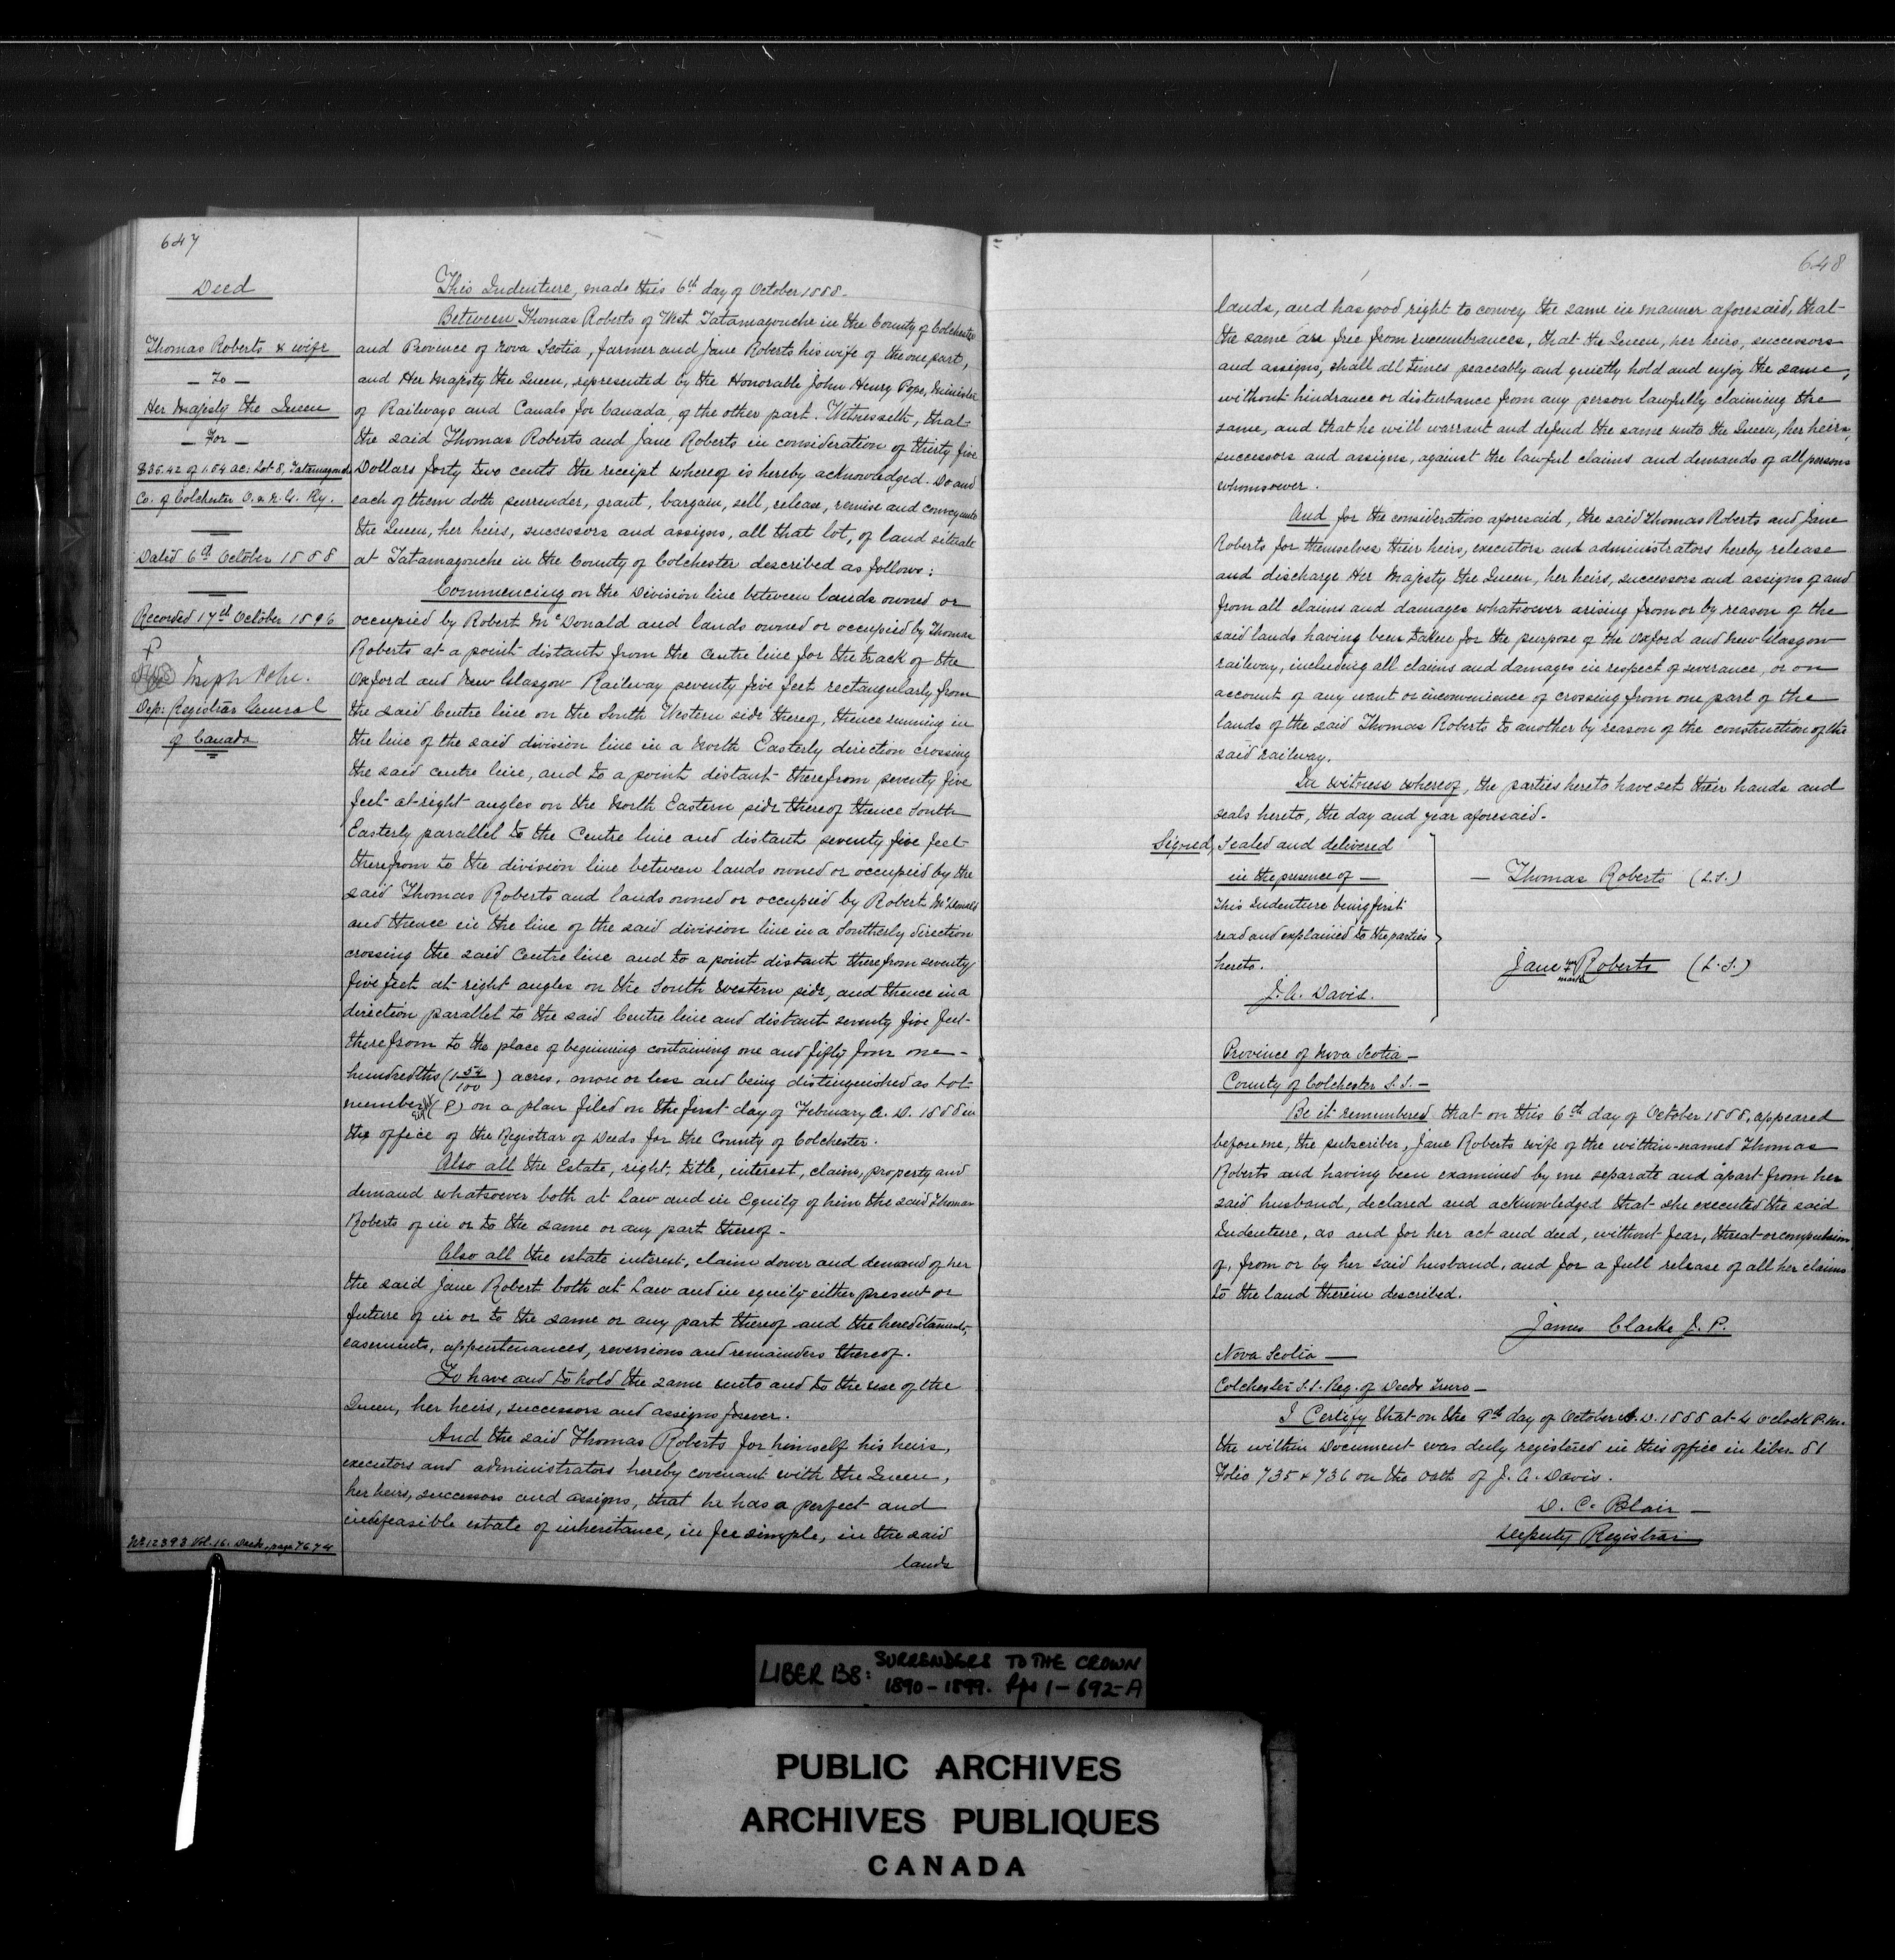 647
Deed
Thomas Roberts & wife
— To —
Her Majesty the Queen
— For —
$35.42 of 1.54 ac: Lot 8, Tatamagouche
Co. of Colchester O. & N. G. Ry.
Dated 6th October 1888
Recorded 17th October 1896
Joseph Pope.
Dep: Registrar General
of Canada
No 12393 Vol. 16. Deeds, page 7674
This Indenture, made this 6th day of October 1888.
Between Thomas Roberts of West Tatamagouche in the County of Colchester
and Province of Nova Scotia, farmer and Jane Roberts his wife of the one part,
and Her Majesty the Queen, represented by the Honorable John Henry Pope, Minister
of Railways and Canals for Canada, of the other part. Witnesseth, that
the said Thomas Roberts and Jane Roberts in consideration of thirty five
Dollars forty two cents the receipt whereof is hereby acknowledged. Do and
each of them doth surrender, grant, bargain, sell, release, remise and convey unto
the Queen, her heirs, successors and assigns, all that lot, of land situate
at Tatamagouche in the County of Colchester described as follows:
Commencing on the Division line between lands owned or
occupied by Robert McDonald and lands owned or occupied by Thomas
Roberts at a point distant from the centre line for the track of the
Oxford and New Glasgow Railway seventy five feet rectangularly from
the said Centre line on the South Western side thereof, thence running in
the line of the said division line in a North Easterly direction crossing
the said centre line, and to a point distant therefrom seventy five
feet at right angles on the North Eastern side thereof thence South
Easterly parallel to the Centre line and distant seventy five feet
therefrom to the division line between lands owned or occupied by the
said Thomas Roberts and lands owned or occupied by Robert McDonald
and thence in the line of the said division line in a Southerly direction
crossing the said Centre line and to a point distant therefrom seventy
five feet at right angles on the South Western side, and thence in a
direction parallel to the said Centre line and distant seventy five feet
therefrom to the place of beginning containing one and fifty four one-
hundredths (1 54/100) acres, more or less and being distinguished as Lot
number (8) on a plan filed on the first day of February A. D. 1888 in
the office of the Registrar of Deeds for the County of Colchester.
Also all the Estate, right, title, interest, claim, property and
demand whatsoever both at Law and in Equity of him the said Thomas
Roberts of in or to the same or any part thereof -
Also all the estate interest, claim dower and demand of her
the said Jane Robert both at Law and in equity either present or
future of in or to the same or any part thereof and the hereditaments,
easements, appurtenances, reversions and remainders thereof.
To have and to hold the same unto and to the use of the
Queen, her heirs, successors and assigns forever.
And the said Thomas Roberts for himself his heirs,
executors and administrators hereby covenant with the Queen,
her heirs, successors and assigns, that he has a perfect and
indefeasible estate of inheritance, in fee simple, in the said
lands
648
lands, and has good right to convey the same in manner aforesaid, that
the same are free from encumbrances, that the Queen, her heirs, successors
and assigns, shall all times peaceably and quietly hold and enjoy the same,
without hindrance or disturbance from any person lawfully claiming the
same, and that he will warrant and defend the same unto the Queen, her heirs,
successors and assigns, against the lawful claims and demands of all persons
whomsoever.
And for the consideration aforesaid, the said Thomas Roberts and Jane
Roberts for themselves their heirs, executors and administrators hereby release
and discharge Her Majesty the Queen, her heirs, successors and assigns of and
from all claims and damages whatsoever arising from or by reason of the
said lands having been taken for the purpose of the Oxford and New Glasgow
railway, including all claims and damages in respect of severance, or on
account of any want or inconvenience of crossing from one part of the
lands of the said Thomas Roberts to another by reason of the construction of the
said railway.
In witness whereof, the parties hereto have set their hands and
seals hereto, the day and year aforesaid.
Signed, Sealed and delivered
in the presence of —
This Indenture being first
read and explained to the parties
hereto.
J. A. Davis.
— Thomas Roberts (L.S.)
Jane her X mark Roberts (L.S.)
Province of Nova Scotia —
County of Colchester S.S. —
Be it remembered that on this 6th day of October 1888, appeared
before me, the subscriber, Jane Roberts wife of the within-named Thomas
Roberts and having been examined by me separate and apart from her
said husband, declared and acknowledged that she executed the said
Indenture, as and for her act and deed, without fear, threat or compulsion
of, from or by her said husband, and for a full release of all her claims
to the land therein described.
James Clarke J. P.
Nova Scotia —
Colchester S.S. Reg. of Deeds Truro —
I Certify that on the 9th day of October A. D. 1888 at 4 o'clock P.M.
the within Document was duly registered in this office in Liber 81
Folio 735 & 736 on the oath of J. A. Davis.
D. C. Blair —
Deputy Registrar
LIBER 138: SURRENDERS TO THE CROWN
1890-1899. Pps 1-692-A
PUBLIC ARCHIVES
ARCHIVES PUBLIQUES
CANADA